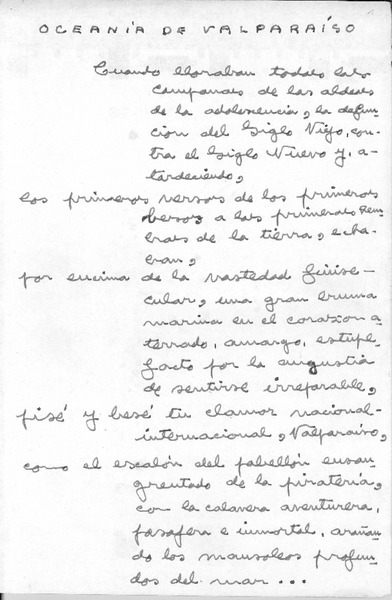 OCEANÍA DE VALPARAÍSO
Cuando lloraban todas las
campanas de las aldeas
de la adolescencia, la defun-
ción del Siglo Viejo, con-
tra el Siglo Nuevo y, a-
tardeciendo,
los primeros versos de los primeros
besos a las primeras hem-
bras de la tierra, echa-
ran,
por encima de la vastedad finise-
cular, una gran bruma
marina en el corazón a-
terrado, amargo, estupe-
facto por la angustia
de sentirse irreparable,
pisé y besé tu clamor nacional-
internacional, Valparaíso,
como el escalón del pabellón ensan-
grentado de la piratería,
con la calavera aventurera,
pasajera e inmortal, arañan-
do los mausoleos profun-
dos del mar...